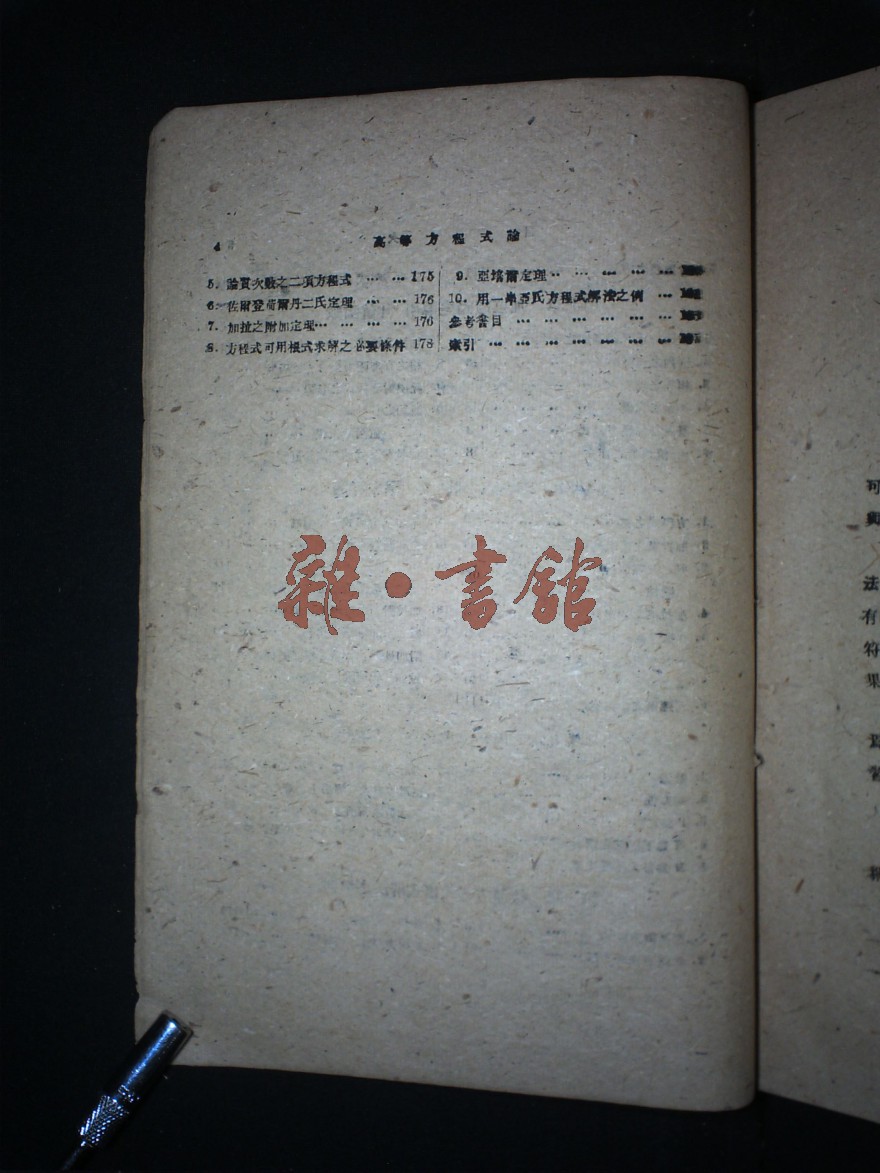 4
高等方程式論
5. 論質次數之二項方程式 … … 175
6. 佐爾登荷爾丹二氏定理 … … 176
7. 加拉之附加定理… … … … 176
8. 方程式可用根式求解之必要條件 178
9. 亞培爾定理 … … … …
10. 用一串亞氏方程式解法之例 …
參考書目 … … … … … …
索引 … … … … … … …
雜·書館
可
與
法
有
符
果